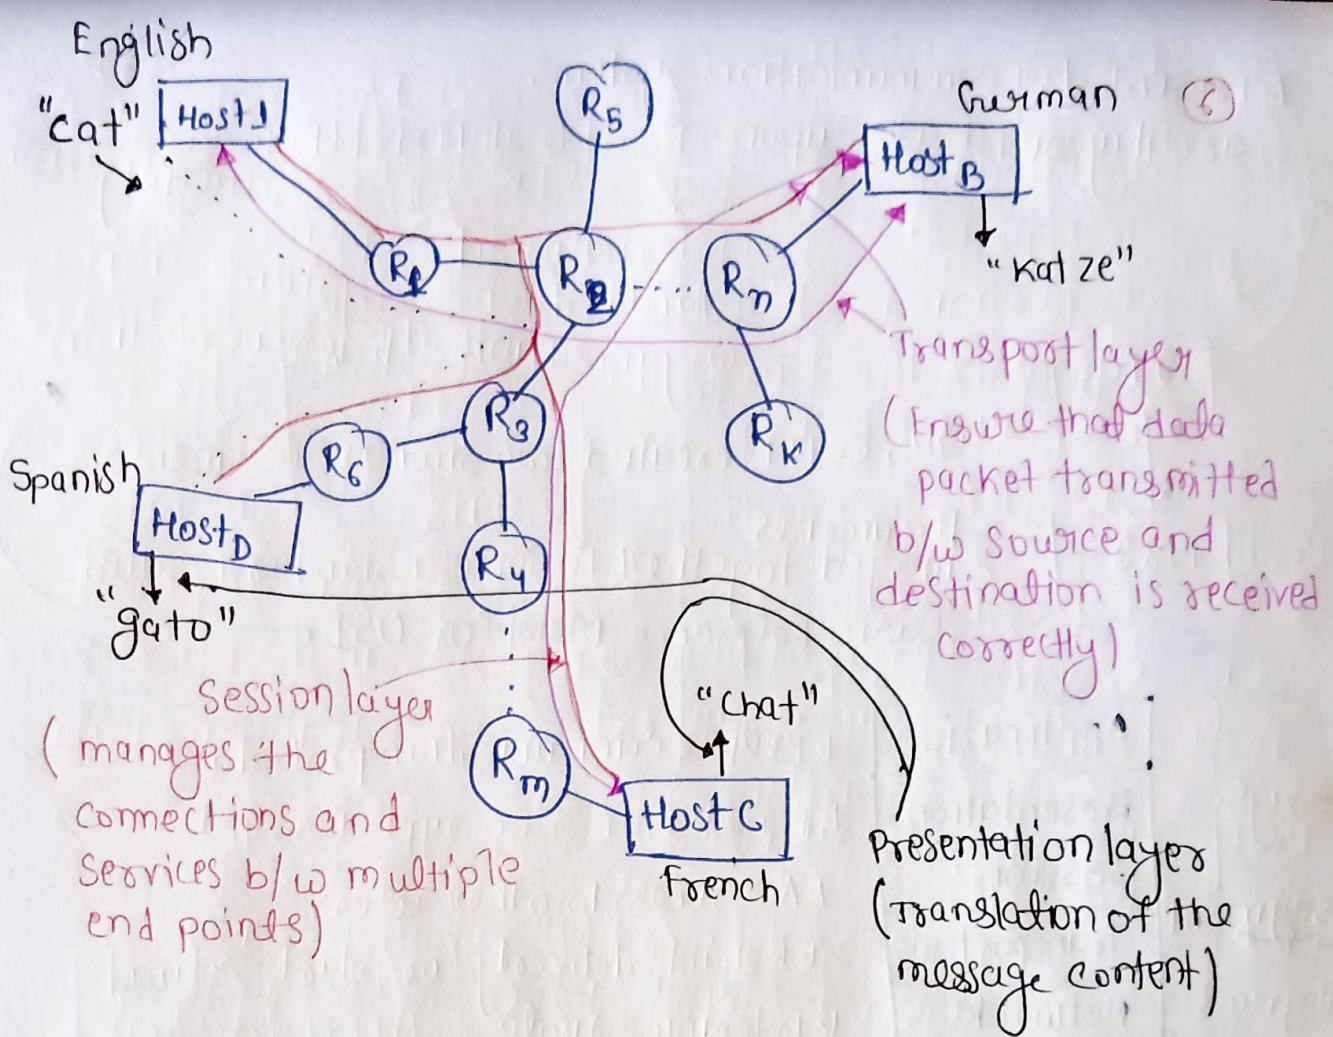 English
"cat"
Host 1
R5
German
6
Host B
"Katze"
R1
R2
Rn
Transport layer
(Ensure that data
packet transmitted
b/w source and
destination is received
correctly)
R3
R6
RK
Spanish
Host D
"gato"
R4
Session layer
(manages the
connections and
services b/w multiple
end points)
Rm
"chat"
Host C
french
Presentation layer
(Translation of the
message content)